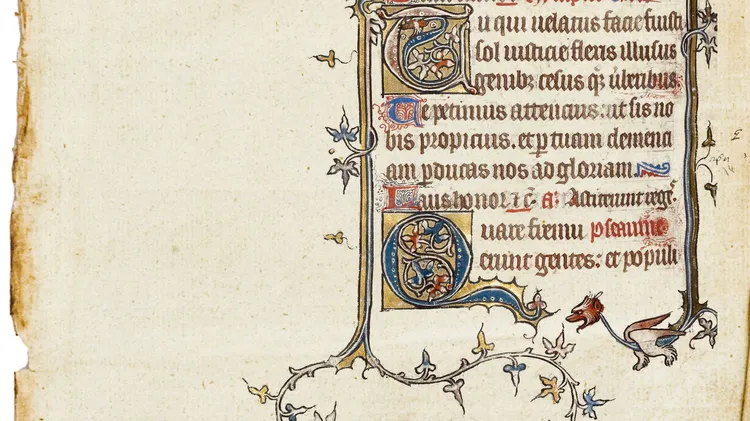 Tu qui uelatus facie fuisti
sol iusticie flexis illusus
genibz cesus qz uberibus
Te petimus attencius: ut sis no
bis propicius. et p tuam clemenci
am pducas nos ad gloriam.
Laus honor et c. a: Astiterunt rege
Quare fremu pseaume
erunt gentes: et populi